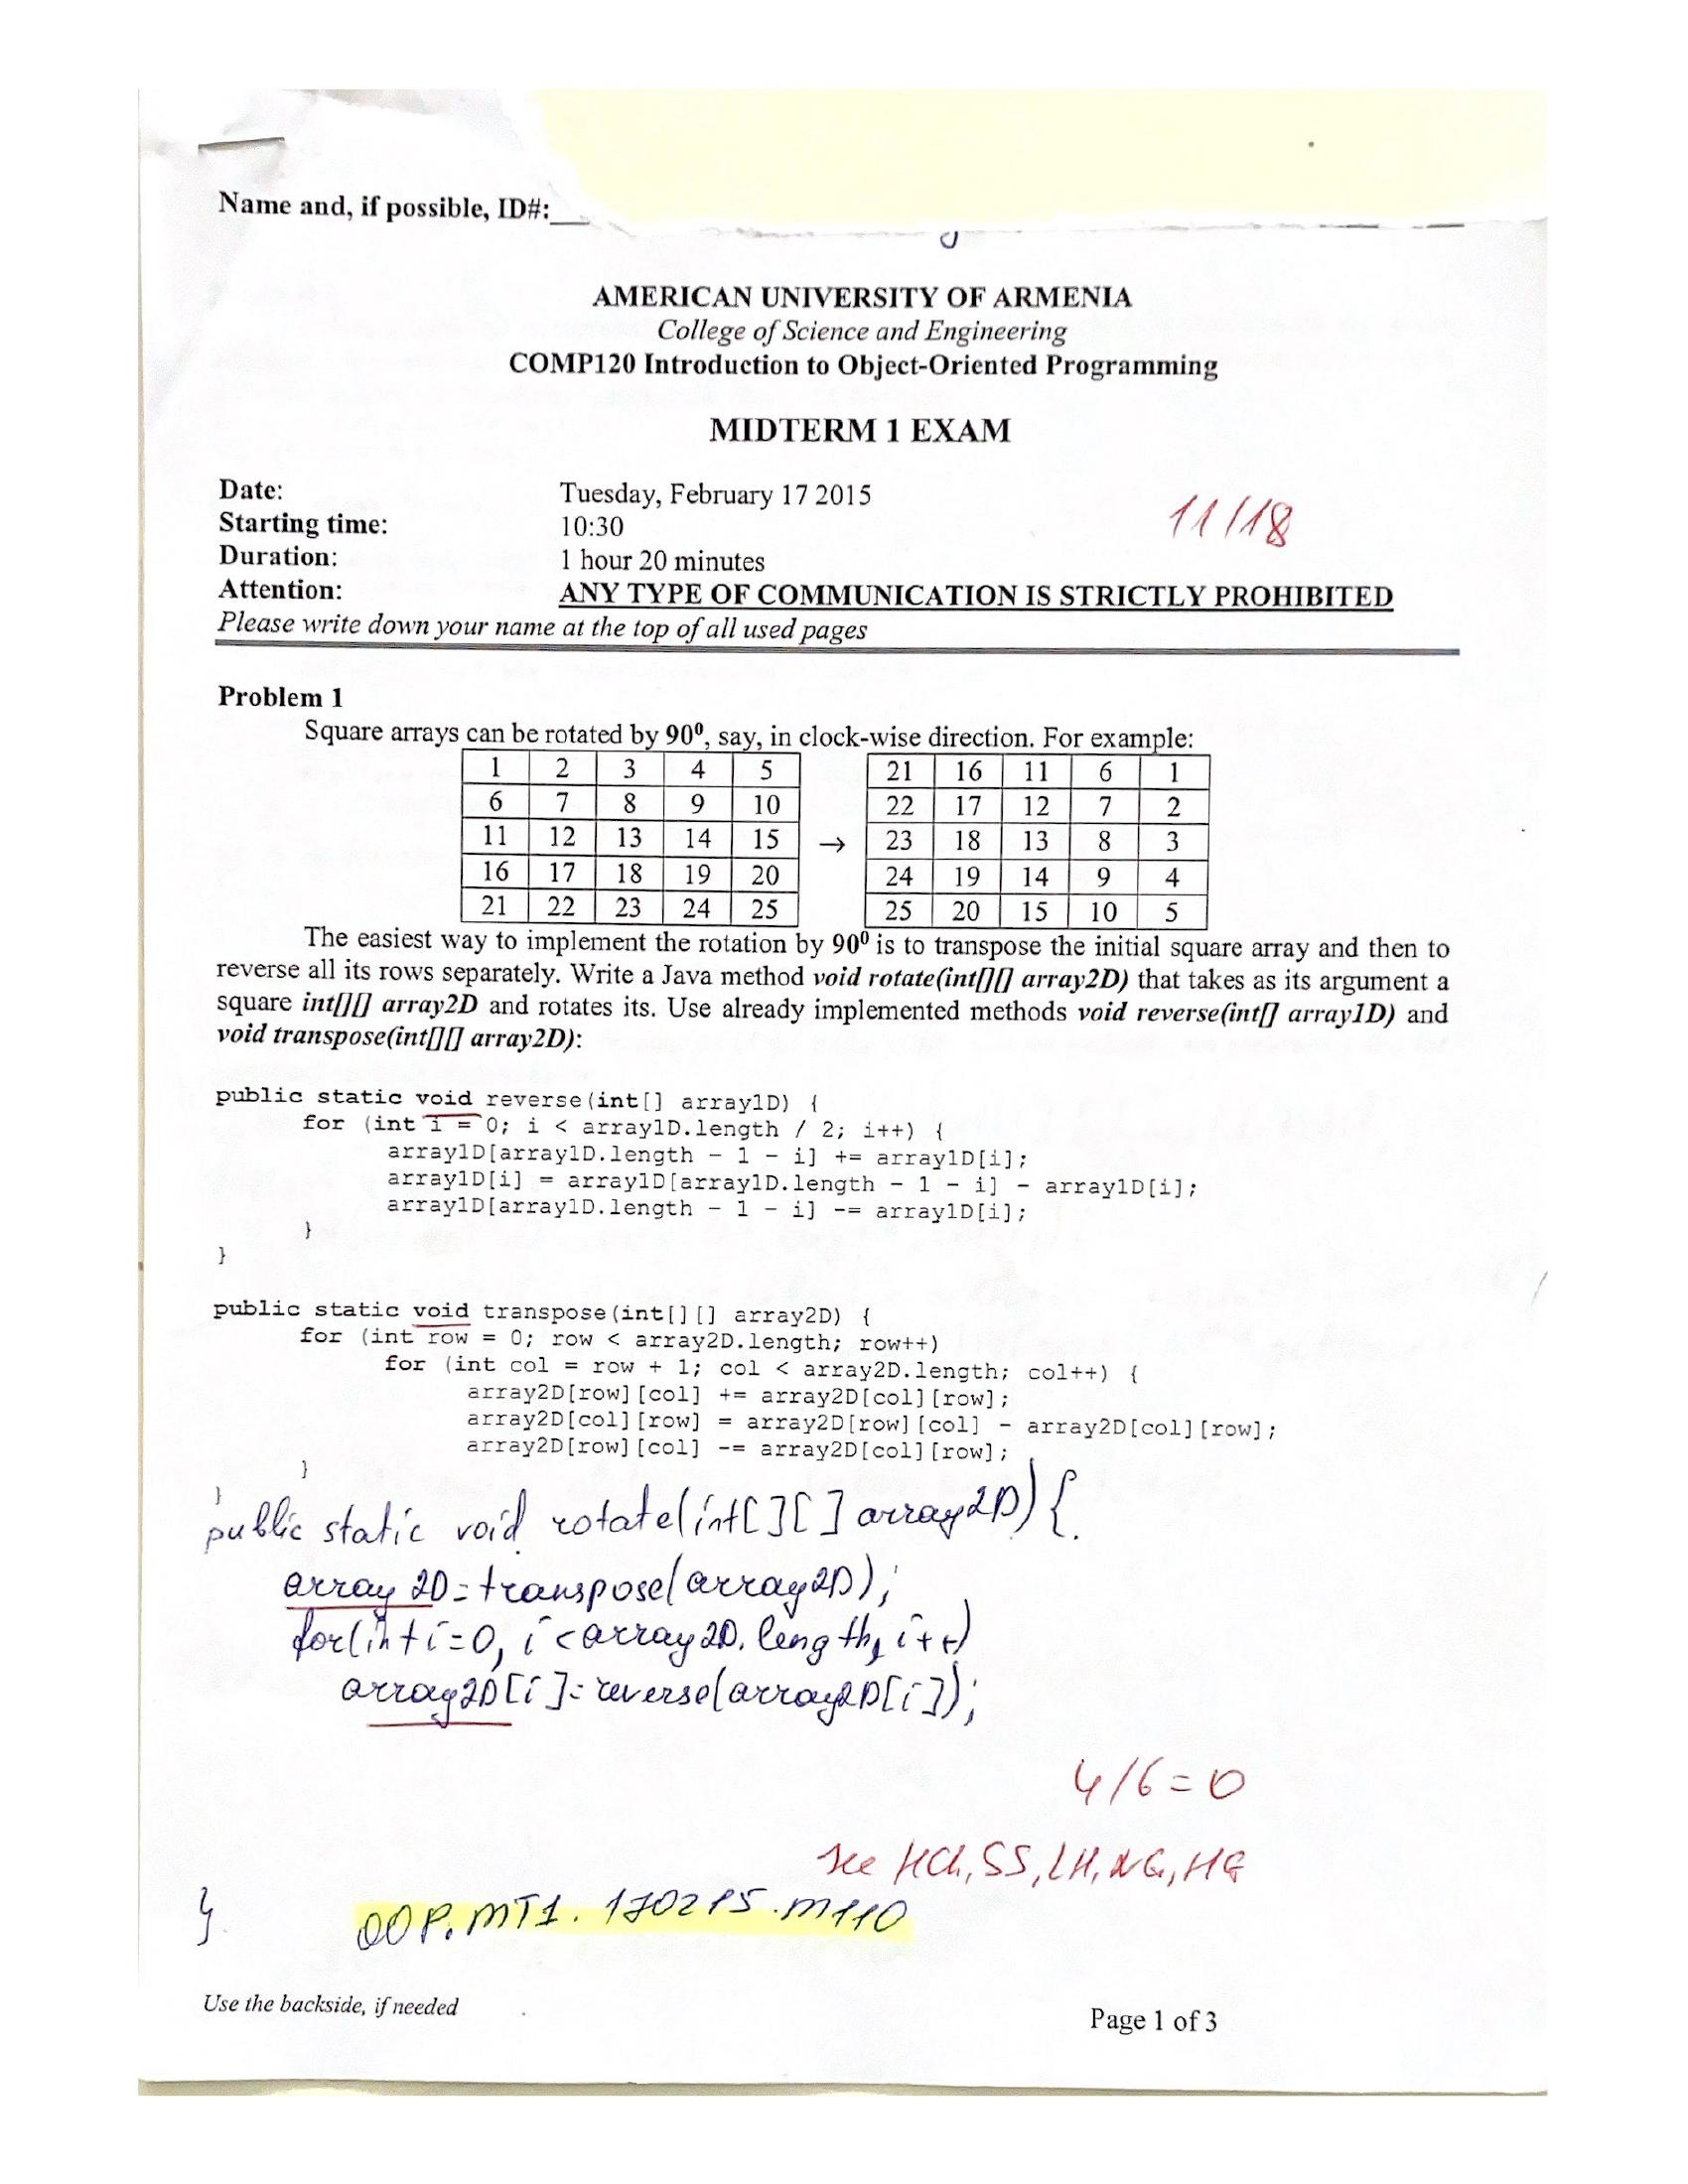 Name and, if possible, ID#:
AMERICAN UNIVERSITY OF ARMENIA
College of Science and Engineering
COMP120 Introduction to Object-Oriented Programming
MIDTERM 1 EXAM
Date: Tuesday, February 17 2015
11/18
Starting time: 10:30
Duration: 1 hour 20 minutes
Attention: ANY TYPE OF COMMUNICATION IS STRICTLY PROHIBITED
Please write down your name at the top of all used pages
Problem 1
Square arrays can be rotated by 90⁰, say, in clock-wise direction. For example:
1 2 3 4 5 21 16 11 6 1
6 7 8 9 10 22 17 12 7 2
11 12 13 14 15 → 23 18 13 8 3
16 17 18 19 20 24 19 14 9 4
21 22 23 24 25 25 20 15 10 5
The easiest way to implement the rotation by 90⁰ is to transpose the initial square array and then to
reverse all its rows separately. Write a Java method void rotate(int[][] array2D) that takes as its argument a
square int[][] array2D and rotates its. Use already implemented methods void reverse(int[] array1D) and
void transpose(int[][] array2D):
public static void reverse(int[] array1D) {
for (int i = 0; i < array1D.length / 2; i++) {
array1D[array1D.length - 1 - i] += array1D[i];
array1D[i] = array1D[array1D.length - 1 - i] - array1D[i];
array1D[array1D.length - 1 - i] -= array1D[i];
}
}
public static void transpose(int[][] array2D) {
for (int row = 0; row < array2D.length; row++)
for (int col = row + 1; col < array2D.length; col++) {
array2D[row][col] += array2D[col][row];
array2D[col][row] = array2D[row][col] - array2D[col][row];
array2D[row][col] -= array2D[col][row];
}
}
public static void rotate(int[][] array2D) {
array 2D = transpose(array2D);
for(int i=0, i<array2D.length, i++)
array2D[i] = reverse(array2D[i]);
4/6 = 0
see HCh, SS, LH, NG, HG
}
OOP.MT1.170215.M110
Use the backside, if needed
Page 1 of 3